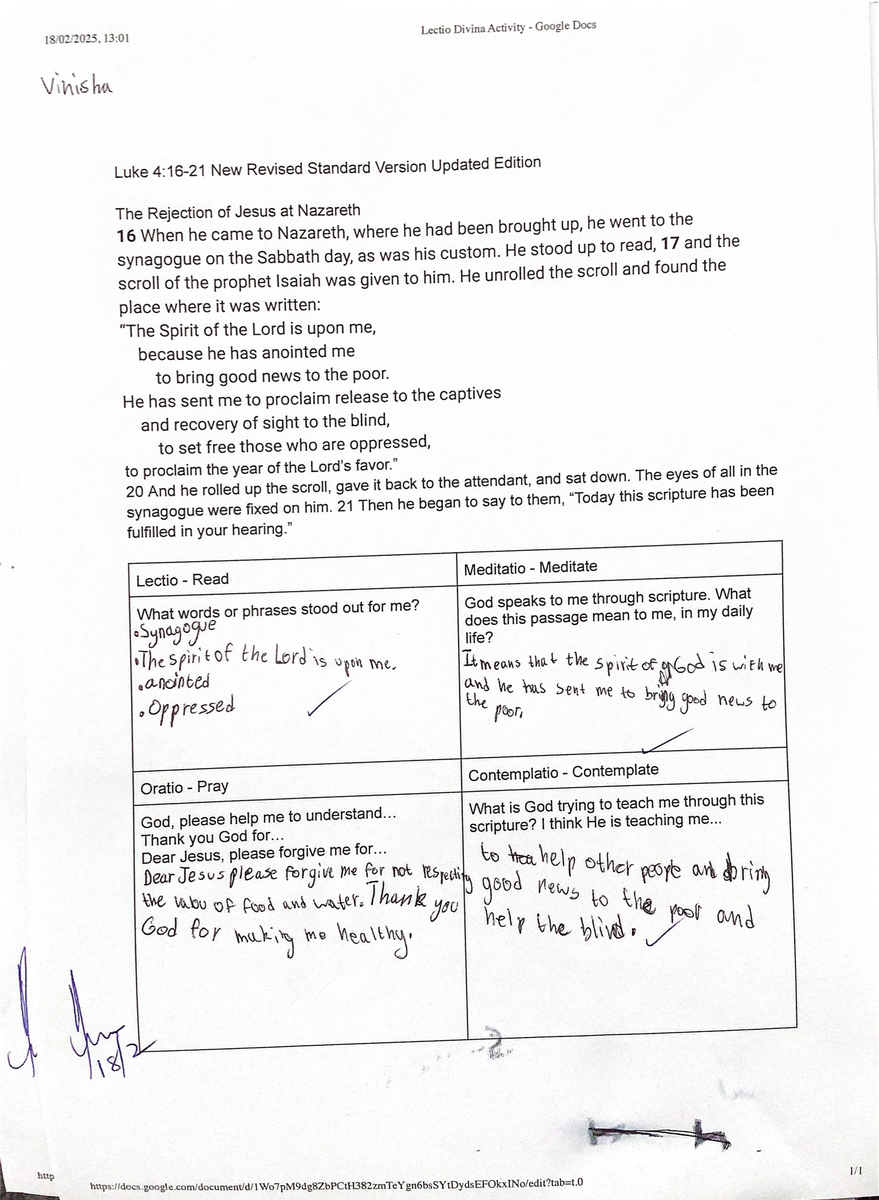 18/02/2025, 13:01
Lectio Divina Activity - Google Docs
Vinisha
Luke 4:16-21 New Revised Standard Version Updated Edition
The Rejection of Jesus at Nazareth
16 When he came to Nazareth, where he had been brought up, he went to the
synagogue on the Sabbath day, as was his custom. He stood up to read, 17 and the
scroll of the prophet Isaiah was given to him. He unrolled the scroll and found the
place where it was written:
“The Spirit of the Lord is upon me,
because he has anointed me
to bring good news to the poor.
He has sent me to proclaim release to the captives
and recovery of sight to the blind,
to set free those who are oppressed,
to proclaim the year of the Lord's favor.”
20 And he rolled up the scroll, gave it back to the attendant, and sat down. The eyes of all in the
synagogue were fixed on him. 21 Then he began to say to them, “Today this scripture has been
fulfilled in your hearing.”
Lectio - Read
What words or phrases stood out for me?
•Synagogue
•The spirit of the Lord is upon me.
•anointed
•Oppressed
Meditatio - Meditate
God speaks to me through scripture. What
does this passage mean to me, in my daily
life?
It means that the spirit of God is with me
and he has sent me to bring good news to
the poor.
Oratio - Pray
God, please help me to understand...
Thank you God for...
Dear Jesus, please forgive me for...
Dear Jesus please forgive me for not respecting
the valu of food and water. Thank you
God for making me healthy.
Contemplatio - Contemplate
What is God trying to teach me through this
scripture? I think He is teaching me...
to help other people and bring
good news to the poor and
help the blind.
18/2
http
https://docs.google.com/document/d/1Wo7pM9dg8ZbPCtH382zmTeYgn6bsSYtDydsEFOkxINo/edit?tab=t.0
1/1